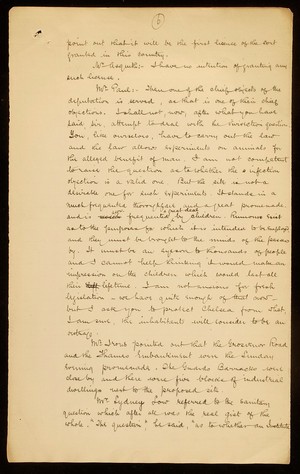 5
point out that it will be the first licence of the sort
granted in this country.
Mr Asquith: I have no intention of granting any
such license.
Mr Paul: Then one of the chief objects of the
deputation is served, as that is one of their chief
objections. I shall not, now, after what you have
said Sir, attempt to deal with the vivisection question.
You, like ourselves, have to carry out the law
and the law allows experiments on animals for
the alleged benefit of man. I am not competent
to raise the question as to whether the
objection is a valid one. But the site is not a
desirable one for such experiments. It stands in a
much frequented thoroughfare and a great promenade,
and is much frequented by children. Rumours exist
as to the purposes for which it is intended to be employed
and they must be brought to the minds of the passers
by. It must be an eyesore to thousands of people
and I cannot help thinking it would make an
impression on the children which would last all
their lifetime. I am not anxious for fresh
legislation - we have quite enough of that now -
but I ask you to protect Chelsea from that,
I am sure, the inhabitants will consider to be an
outrage.
Mr Irons pointed out that the Grosvenor Road
and the Thames Embankment were the Sunday
evening promenade. The Guards Barracks were
close by and there were five blocks of industrial
dwellings next to the proposed site.
Mr Sydney Low referred to the sanitary
question which after all was the real gist of the
whole. "The question", he said, "as to whether an Institute